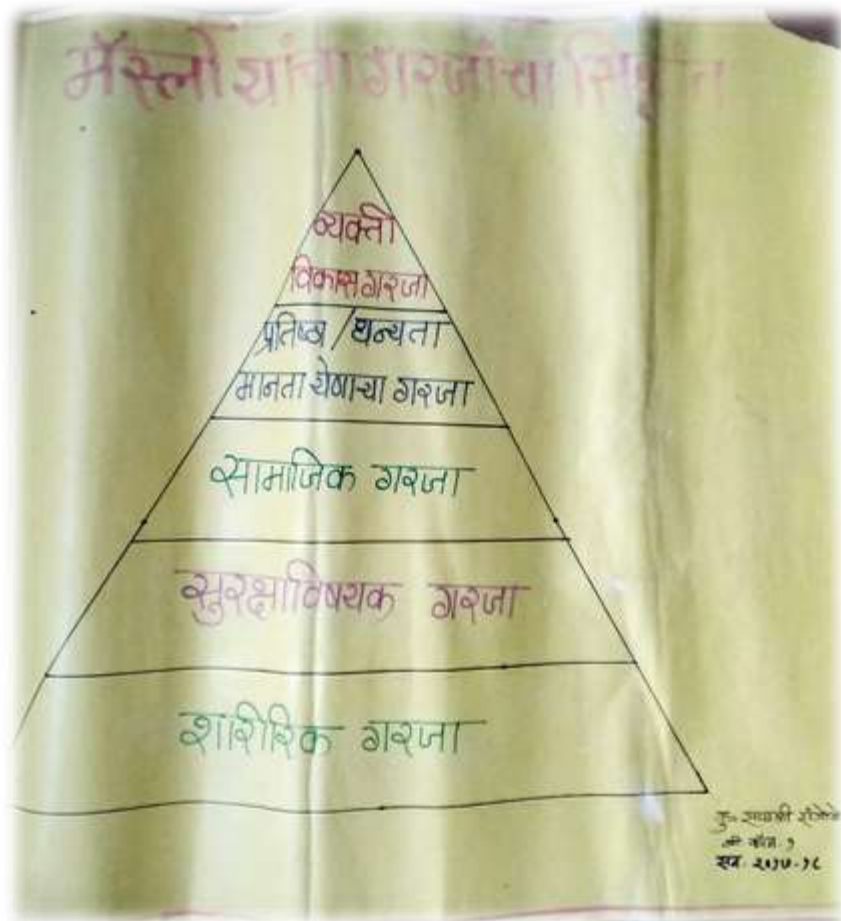 मॅस्लो यांचा गरजांचा
व्यक्ती
विकास गरजा
प्रतिष्ठा / धन्यता
मानता येणाऱ्या गरजा
सामाजिक गरजा
सुरक्षाविषयक गरजा
शारिरिक गरजा
कु०
सन. २०१७-१८